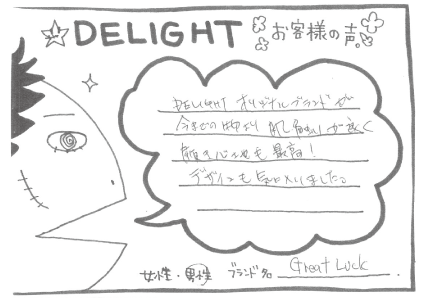 DELIGHT お客様の声
DELIGHT オリジナルブランドが
今までの物より 肌触りが良く
着心地も最高!
デザインも気に入りました。
女性・男性 ブランド名 Great Luck